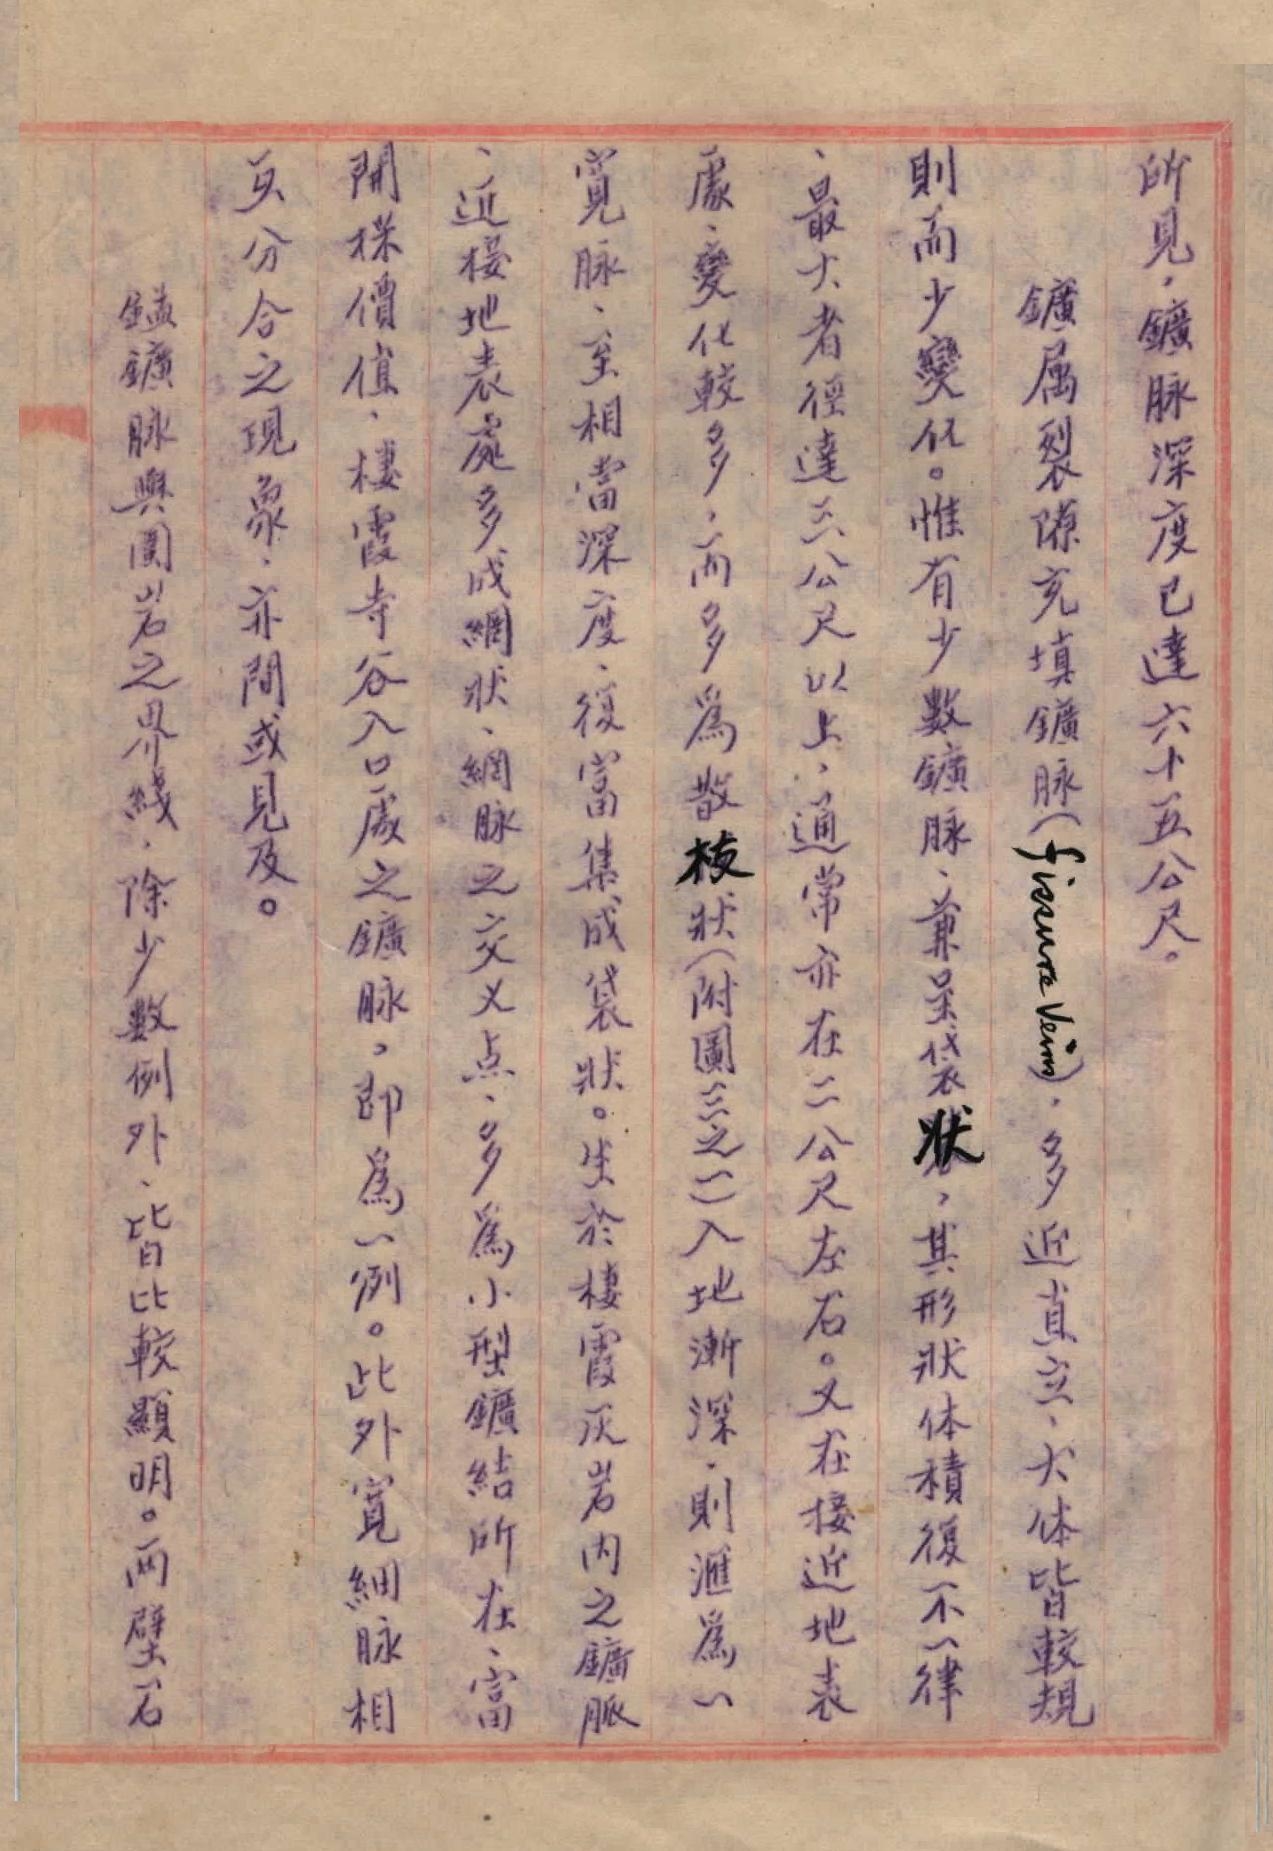 所見，鑛脉深度已達六十五公尺。
鑛属裂隙充填鑛脉(fissure Vein)，多近直立、大体皆較規
則而少變化。惟有少數鑛脉、兼呈袋狀，其形狀体積復不一律
、最大者徑達三公尺以上，通常亦在二公尺左右。又在接近地表
處、變化較多，而多爲散枝狀(附圖三之一)入地漸深，則滙爲一
寬脉、至相當深度、復富集成袋狀。生於棲霞灰岩内之鑛脈
、近接地表處多成網狀、網脉之交叉点、多爲小型鑛結所在、富
開採價值、棲霞寺谷入口處之鑛脉，即爲一例。此外寬細脉相
互分合之現象、亦間或見及。
錳鑛脉與圍岩之界綫、除少數例外、皆比較顯明。兩壁石